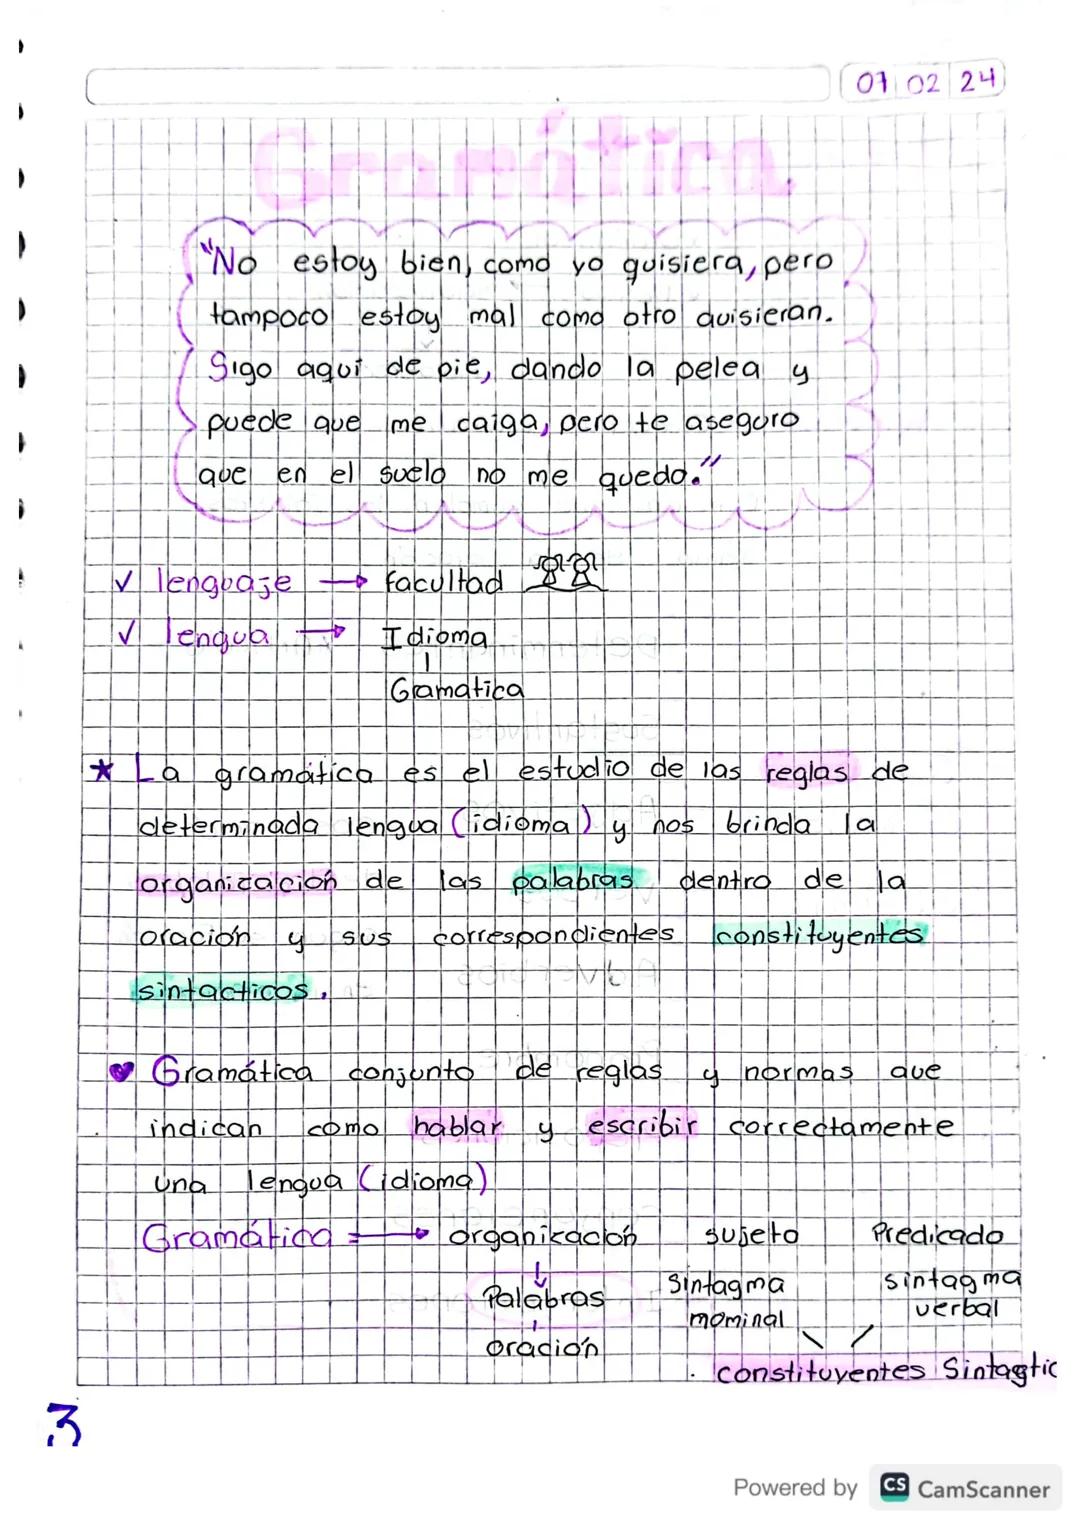 07 02 24
Gramática
"No estoy bien, como yo quisiera, pero
tampoco estoy mal como otro quisieran.
Sigo aqui de pie, dando la pelea y
puede que me caiga, pero te aseguro
que en el suelo no me quedo."
✓ lenguaje → facultad
✓ lengua → Idioma
Gramatica
★ La gramática es el estudio de las reglas de
determinada lengua (idioma) y nos brinda la
organización de las palabras dentro de la
oración y sus correspondientes constituyentes
sintacticos.
♥ Gramática conjunto de reglas y normas que
indican como hablar y escribir correctamente
una lengua (idioma)
Gramática → organización sujeto Predicado
↓ Palabras Sintagma sintagma
mominal verbal
oración
constituyentes Sintagtic
3
Powered by CS CamScanner